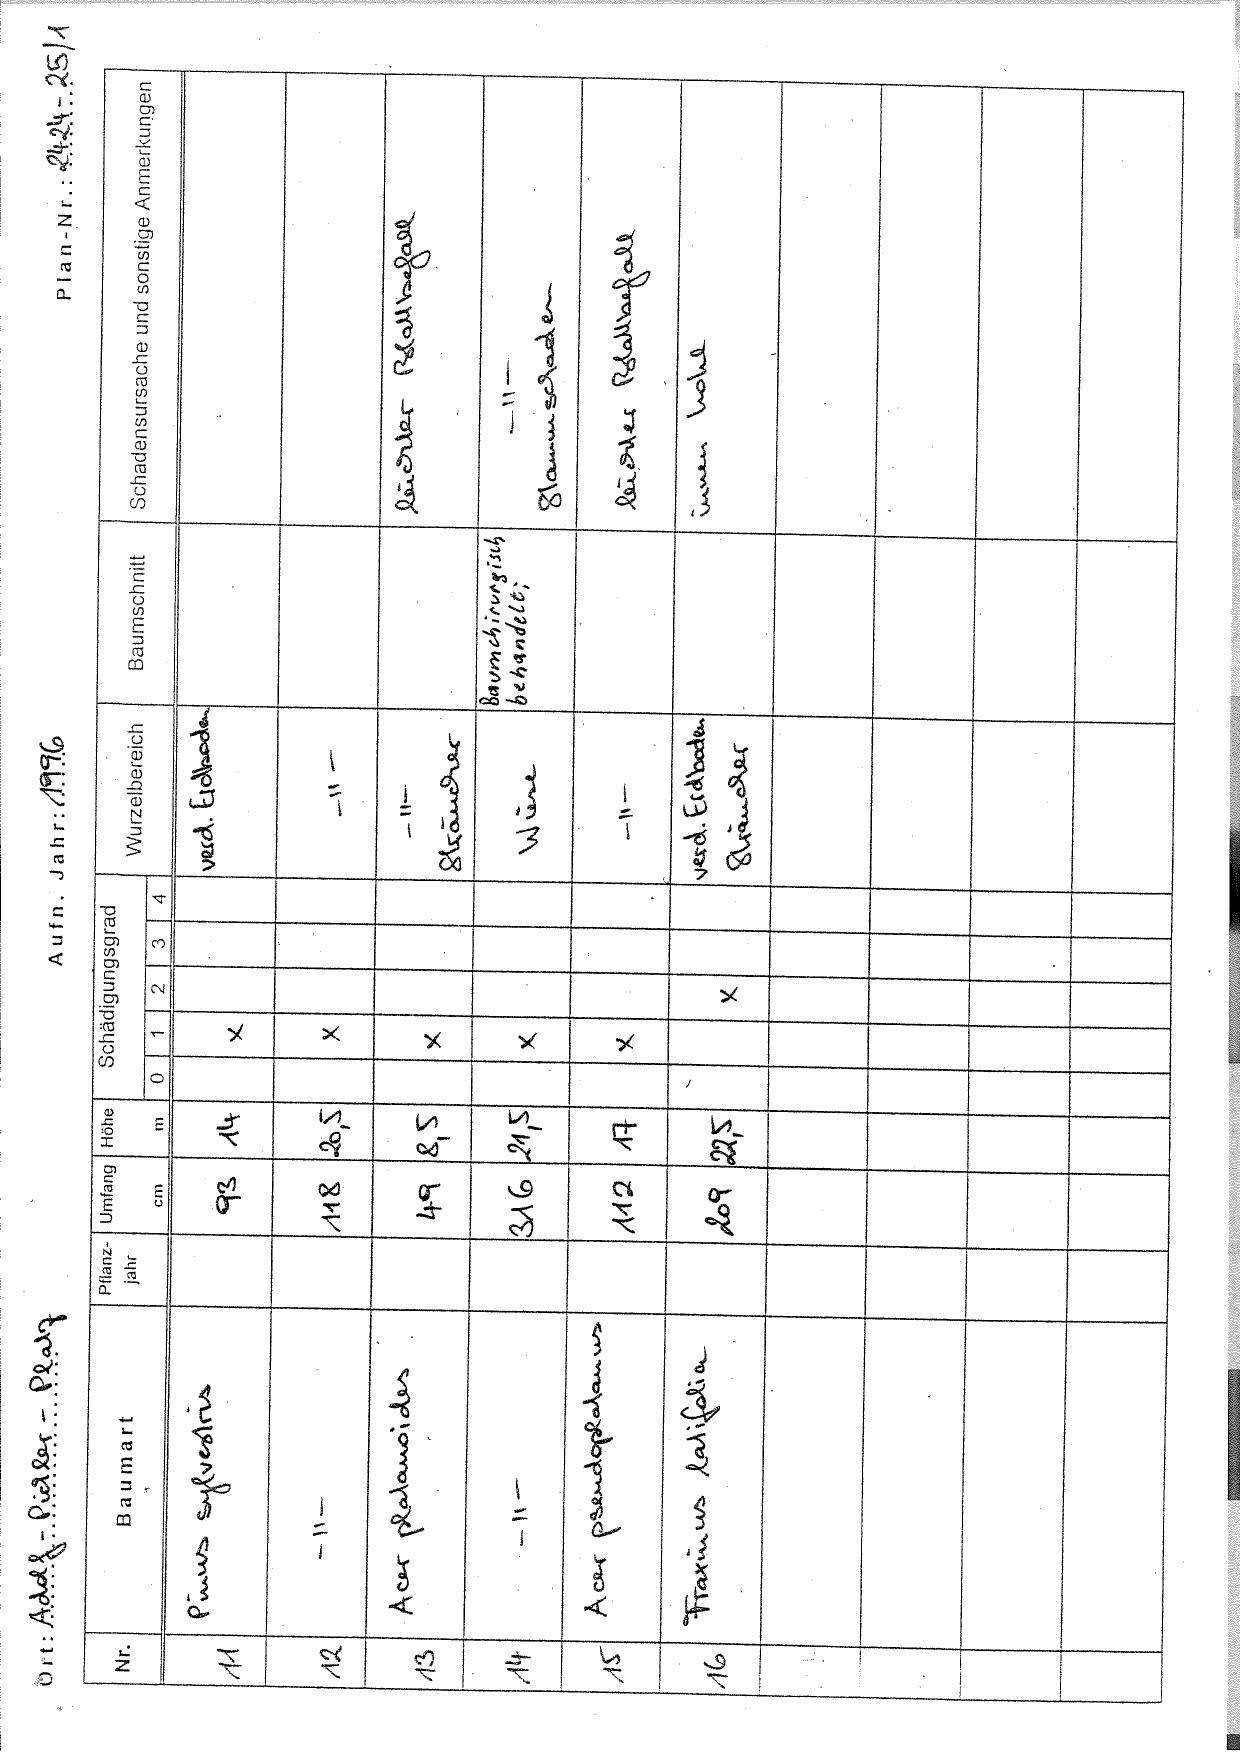 Ort: Adolf-Pichler-Platz Aufn. Jahr: 1996 Plan-Nr.: 2424-25/1
Nr. Baumart Pflanz-jahr Umfang cm Höhe m Schädigungsgrad 0 1 2 3 4 Wurzelbereich Baumschnitt Schadensursache und sonstige Anmerkungen
11 Pinus sylvestris 93 14 x verd. Erdboden
12 -"- 118 20,5 x -"-
13 Acer platanoides 49 8,5 x -"- leichter Blattbefall
Sträucher
14 -"- 316 21,5 x Wiese Baumchirurgisch -"-
behandelt; Stammschaden
15 Acer pseudoplatanus 112 17 x -"- leichter Blattbefall
16 Fraxinus latifolia 209 22,5 x verd. Erdboden innen hohl
Sträucher